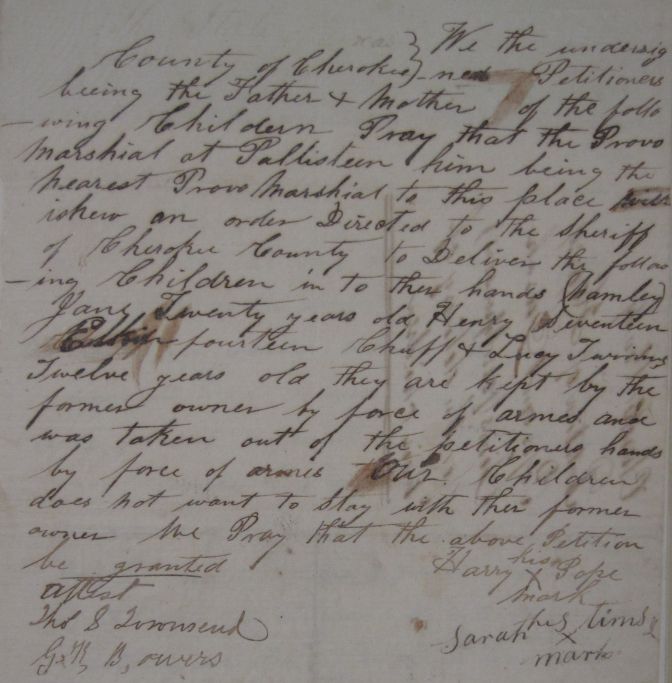 } We the undersig
County of Cherokee } -ned Petitioners
beeing the Father & Mother of the follo
-wing Childern Pray that the Provo
Marshial at Pallisteen him being the
nearest Provo Marshial to this place will
iskew an order Directed to the Sheriff
of Cherokee County to Deliver the follow
-ing Children in to ther hands (namley)
Jane Twenty years old Henry Seventeen
fourteen Chuff & Lucy Twinns
Twelve years old they are kept by the
former owner by force of armes and
was taken out of the petitioners hands
by force of armes Our Children
does not want to stay with ther former
owner We Pray that the above Petition
be granted
attest
Harry his X mark Pope
Thos S Townsend
Sarah hes X mark tims
B, owers